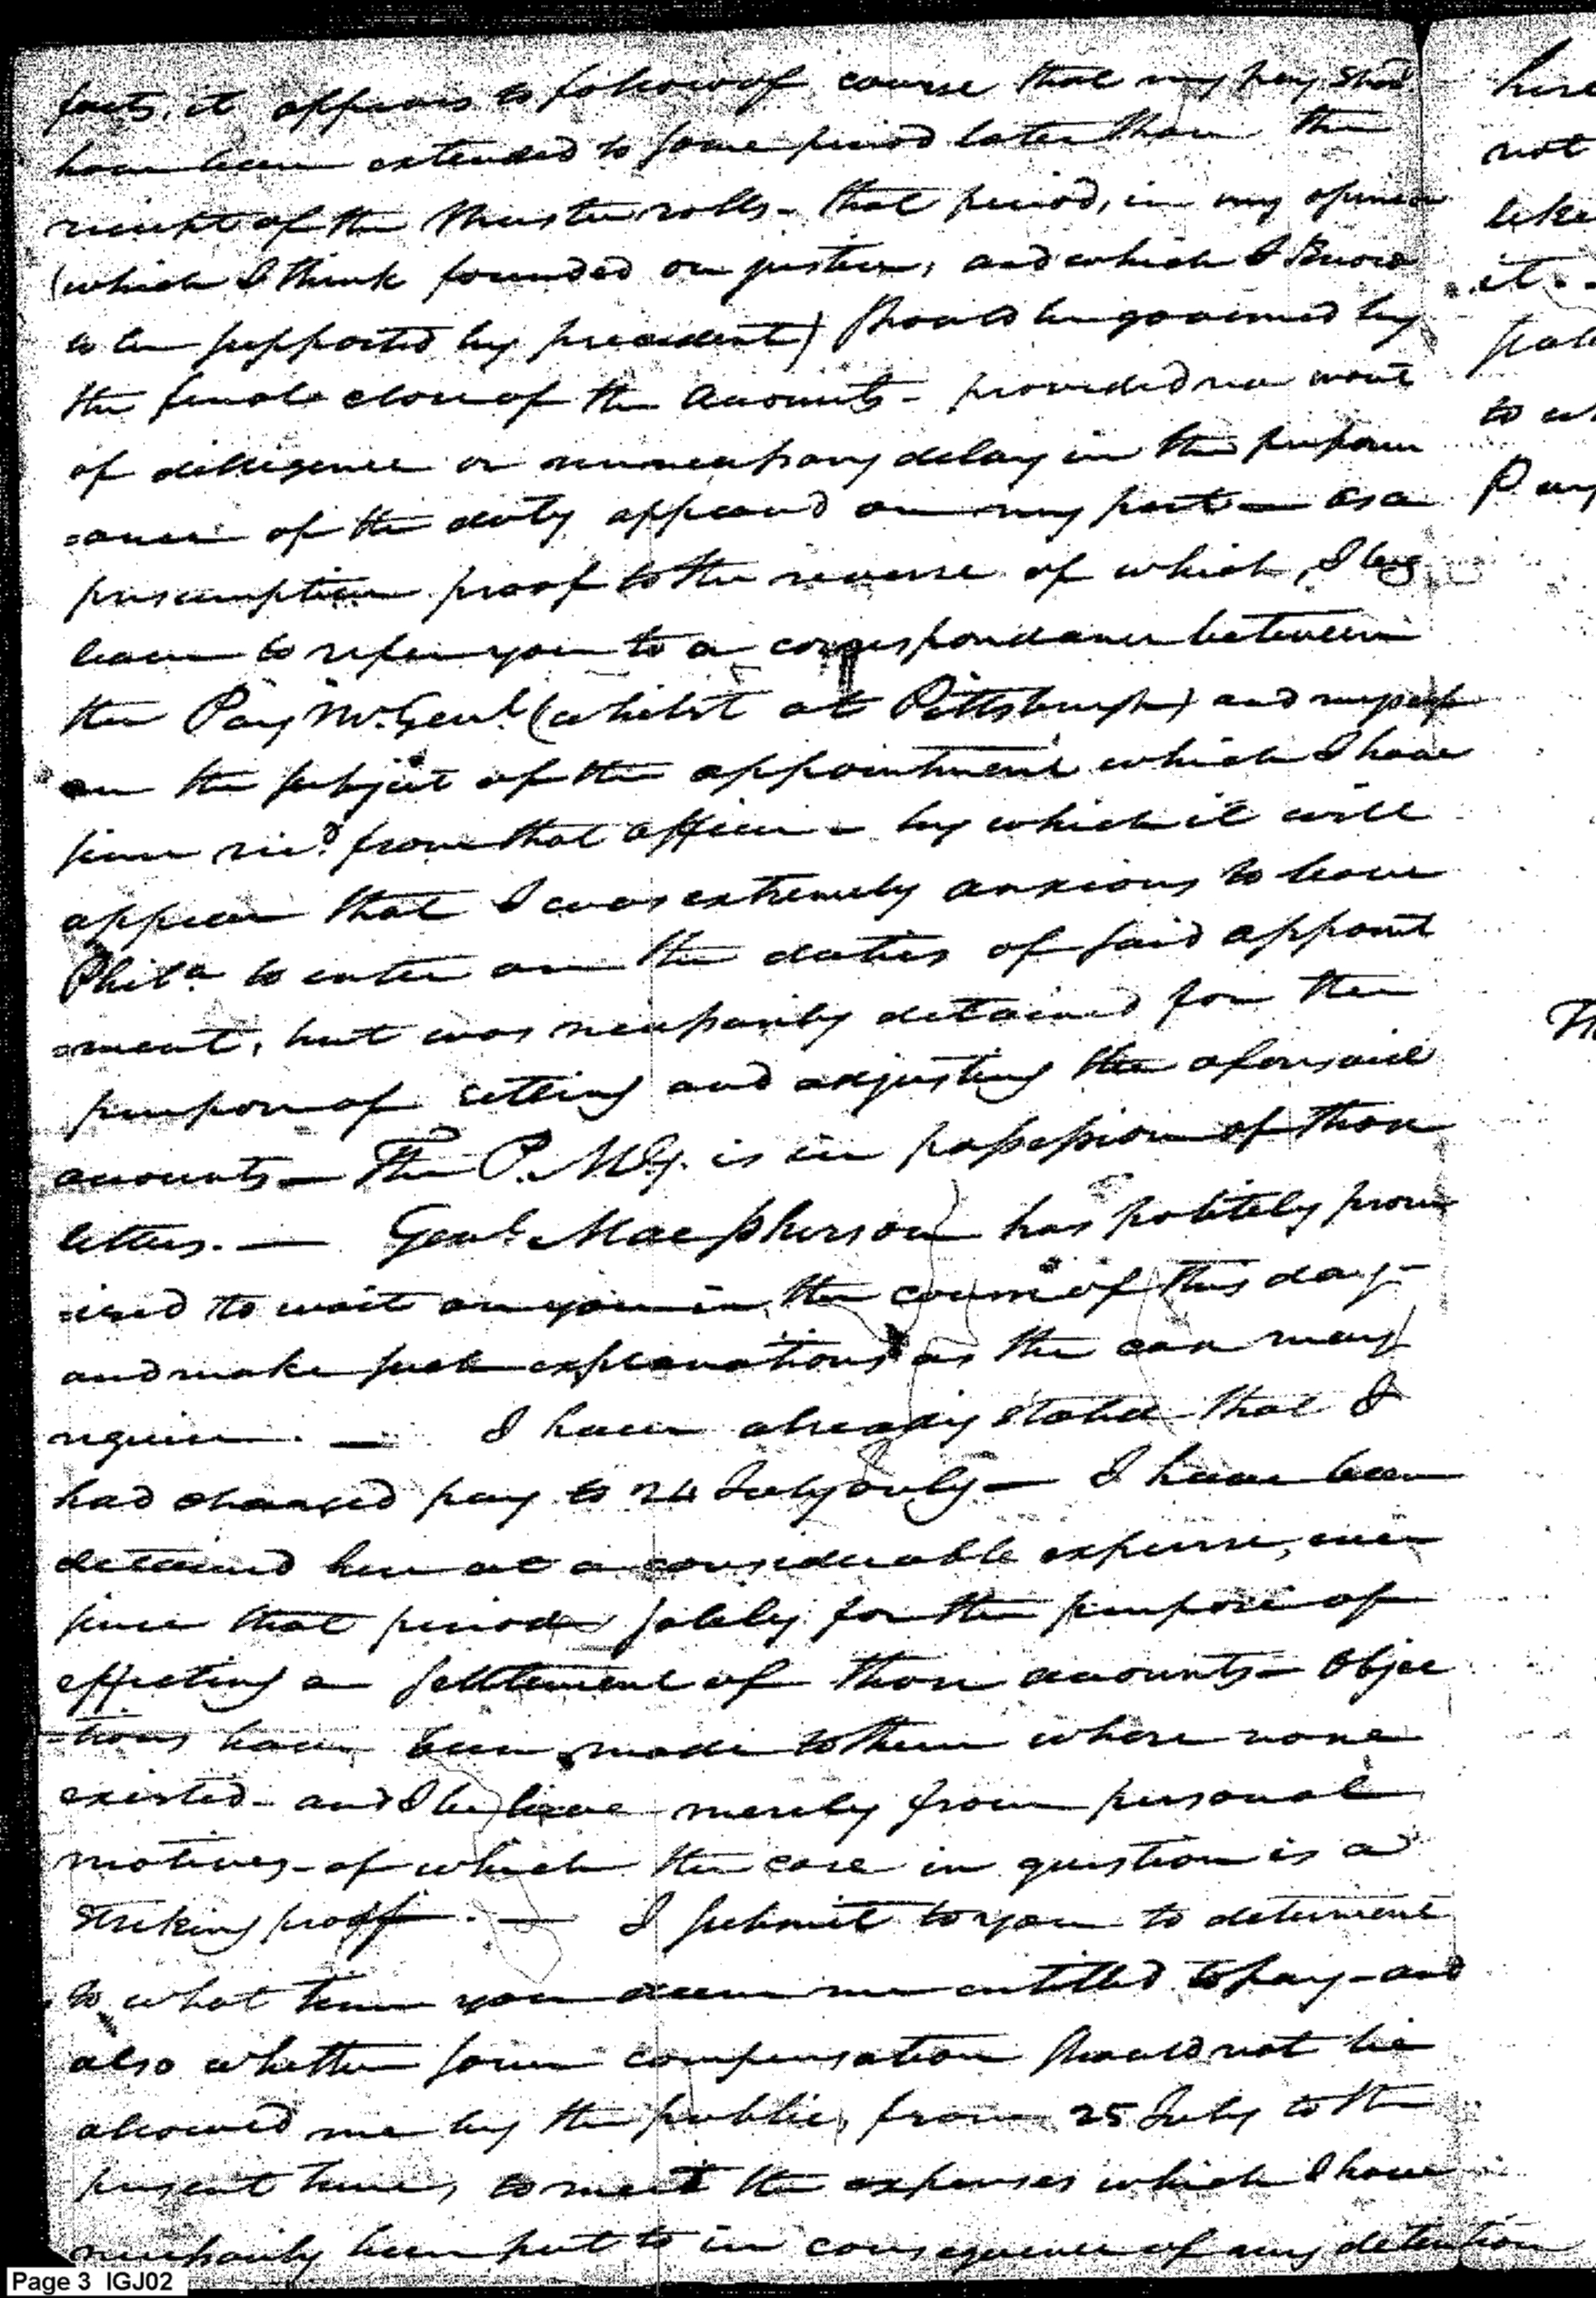 facts, it appears to follow of course that my pay shod
have been extended to some period later than the
receipt of the Muster rolls - that period, in my opinion
(which I think founded on justice, and which I know
to be supported by precedent) should be governed by
the final close of the accounts - provided no want
of dilligence or unnecessary delay in the perform
=ance of the duty appeared on my part - as a
presumptive proof to the reverse of which, I beg
leave to refer you to a correspondance between
the Pay Mr. Genl. (whilst at Pittsburgh) and myself
on the subject of the appointment which I have
since recd. from that officer - by which it will
appear that I was extremely anxious to leave
Phila. to enter on the duties of said appoint
=ment, but was necessarily detained for the
purpose of settling and adjusting the aforesaid
accounts - The P. M. G. is in possession of those
letters. — Genl. Macpherson has politely prom
=ised to wait on you in the course of this day -
and make such explanations as the case may
require. — I have already stated that I
had charged pay to 24 July only - I have been
detained here at a considerable expense, ever
since that period solely for the purpose of
effecting a settlement of those accounts - Objec
=tions have been made to them where none
existed - and I believe merely from personal
motives - of which the case in question is a
striking proof. — I submit to you to determine
to what time you deem me entitled to pay - and
also whether some compensation should not be
allowed me by the public, from 25 July to the
present time, to meet the expenses which I have
necessarily been put to in consequence of my detention
here
not
like
it -
to
Pay
Page 3 IGJ02